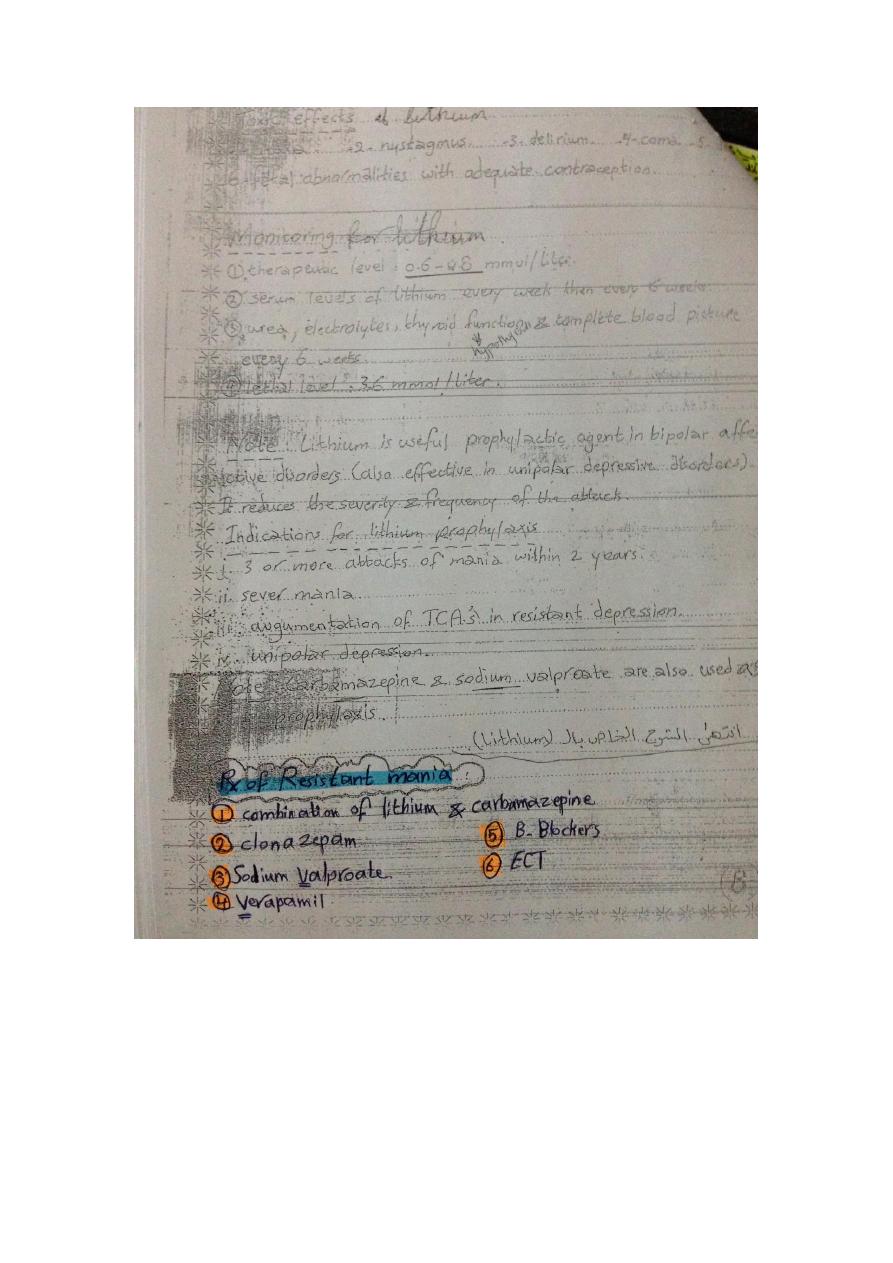 effects of Lithium
-2- nystagmus -3- delirium -4- coma -5-
abnormalities with adequate contraception.
Monitoring for lithium.
① therapeutic level : 0.6 - 0.8 mmol/Liter.
② serum levels of lithium every week then every 6 weeks.
③ urea, electrolytes, thyroid function & complete blood picture
every 6 weeks.
④ lethal level : 3.6 mmol/liter.
Note : Lithium is useful prophylactic agent in bipolar affe
ctive disorders (also effective in unipolar depressive disorders).
It reduces the severity & frequency of the attack.
Indications for lithium prophylaxis
i. 3 or more attacks of mania within 2 years.
ii. sever mania.
iii. augumentation of TCA's in resistant depression.
iv. unipolar depression.
Note : Carbamazepine & sodium valproate are also used as
prophylaxis.
انتهى الشرح الخاص بال (Lithium)
Rx of Resistant mania :
① combination of lithium & carbamazepine
② clonazepam
⑤ B-Blockers
③ Sodium Valproate.
⑥ ECT
④ Verapamil
8